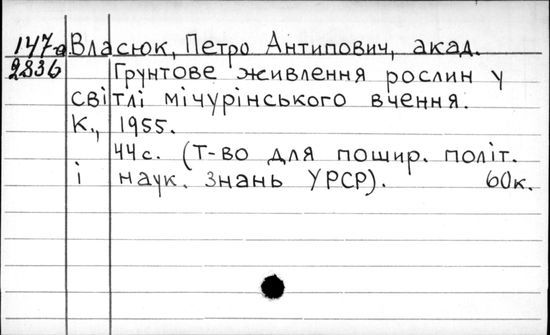 147а Власюк, Петро Антипович, акад.
2836 Грунтове живлення рослин у
світлі мічурінського вчення.
К., 1955.
44 с. (Т-во для пошир. політ.
і наук. знань УРСР). 60к.